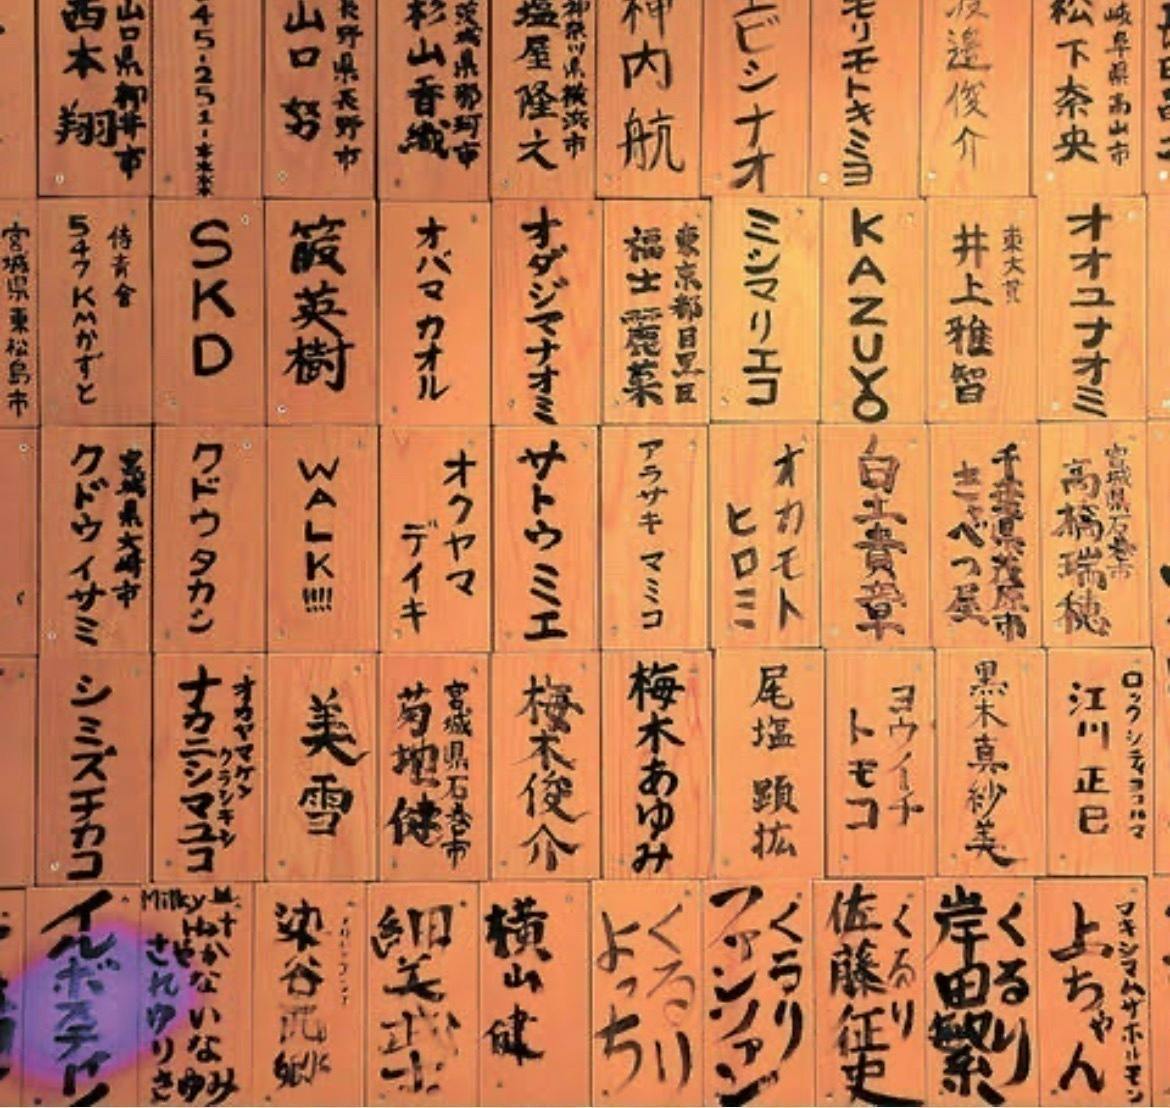 松下奈央
岐阜県高山市
邉俊介
モリモトキミヨ
エビシナオ
神内航
神奈川県横浜市
塩屋隆之
茨城県那珂市
杉山香織
長野県長野市
山口努
45-251-***
山口県柳井市
西本翔
オオユナオミ
井上雅智
KAZUYO
ミシマリエコ
東京都目黒区
福士麗菜
オダジマナオミ
オバマカオル
英樹
SKD
侍青會
547KMかずと
宮城県東松島市
宮城県石巻市
高橋瑞穂
千葉県茂原市
きゃべつ屋
白土貴章
オカモト
ヒロミ
アラサキマミコ
サトウミエ
オクヤマ
デイキ
WALK!!!!
クドウタカシ
宮城県大崎市
クドウイサミ
ロックシティヨコハマ
江川正巳
黒木真紗美
ヨウイチ
トモコ
尾塩顕拡
梅木あゆみ
梅木俊介
宮城県石巻市
菊地健
美雪
オカヤマケン
クラシキシ
ナカニシマユコ
シミズチカコ
マキシマムザホルモン
上ちゃん
くるり
岸田繁
くるり
佐藤征史
くるり
ファンファン
くるり
よっち
横山健
細美武士
染谷西郷
Milky
イルボステイン